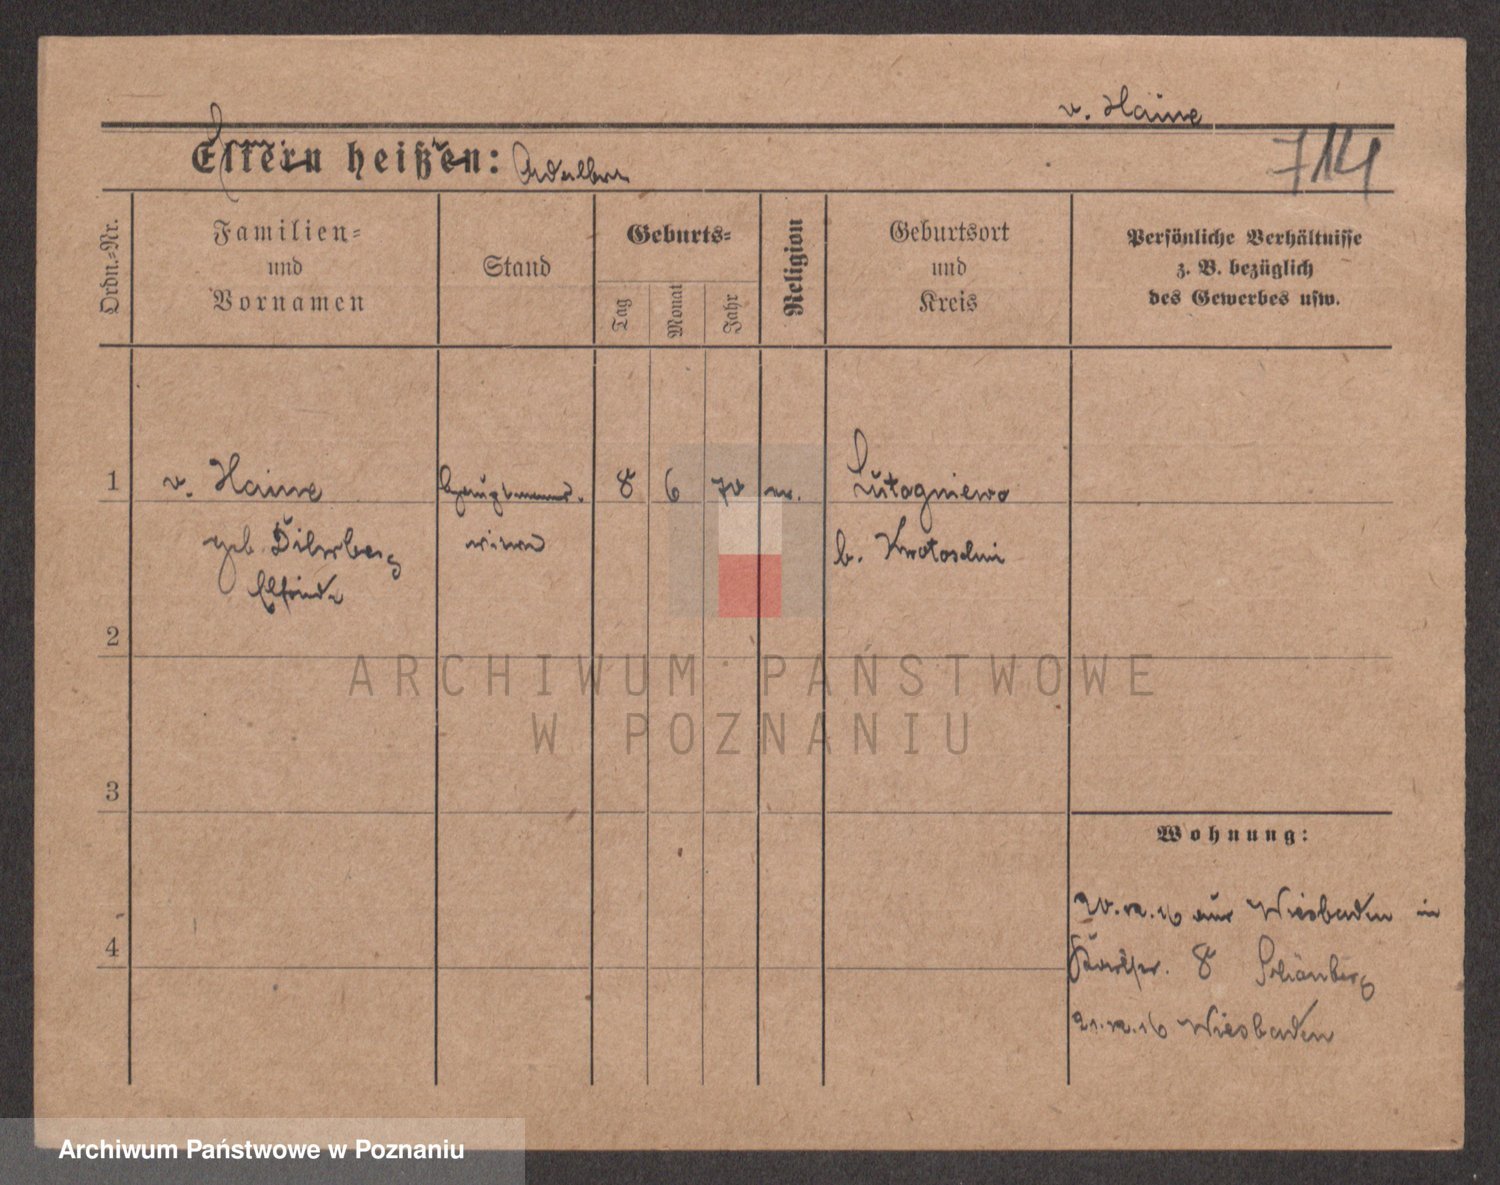 v. Haine
Eltern heißen:
714
Ordn.-Nr.
Familien-
und
Vornamen
Stand
Geburts-
Tag
Monat
Jahr
Religion
Geburtsort
und
Kreis
Persönliche Verhältnisse
z. B. bezüglich
des Gewerbes usw.
1
v. Haine
Hauptmanns-
witwe
8
6
70
ev.
Lutogniewo
geb.
Elfriede
b. Krotoschin
2
ARCHIWUM PAŃSTWOWE
W POZNANIU
3
Wohnung:
20.12.16 aus Wiesbaden in
4
8 Schönberg
21.12.16 Wiesbaden
Archiwum Państwowe w Poznaniu